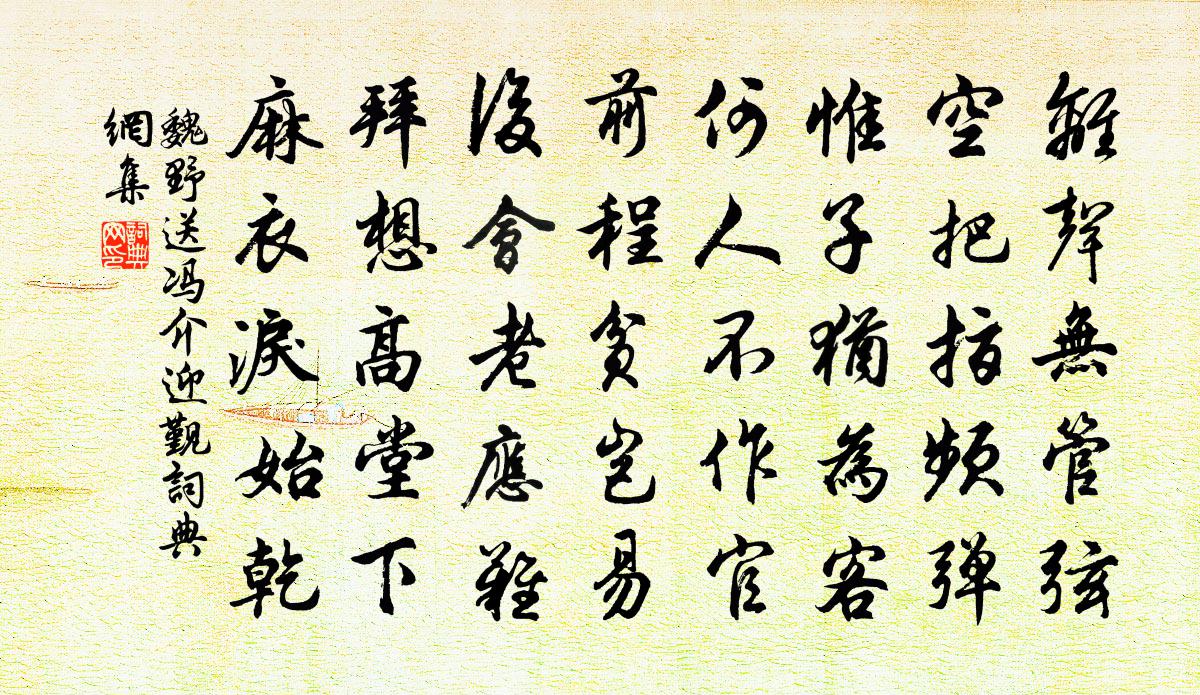 離聲無管弦
空把指頻彈
惟子猶為客
何人不作官
前程貧豈易
後會老應難
拜想高堂下
麻衣淚始乾
魏野送冯介迎觐詞典
網集
詞典
网印